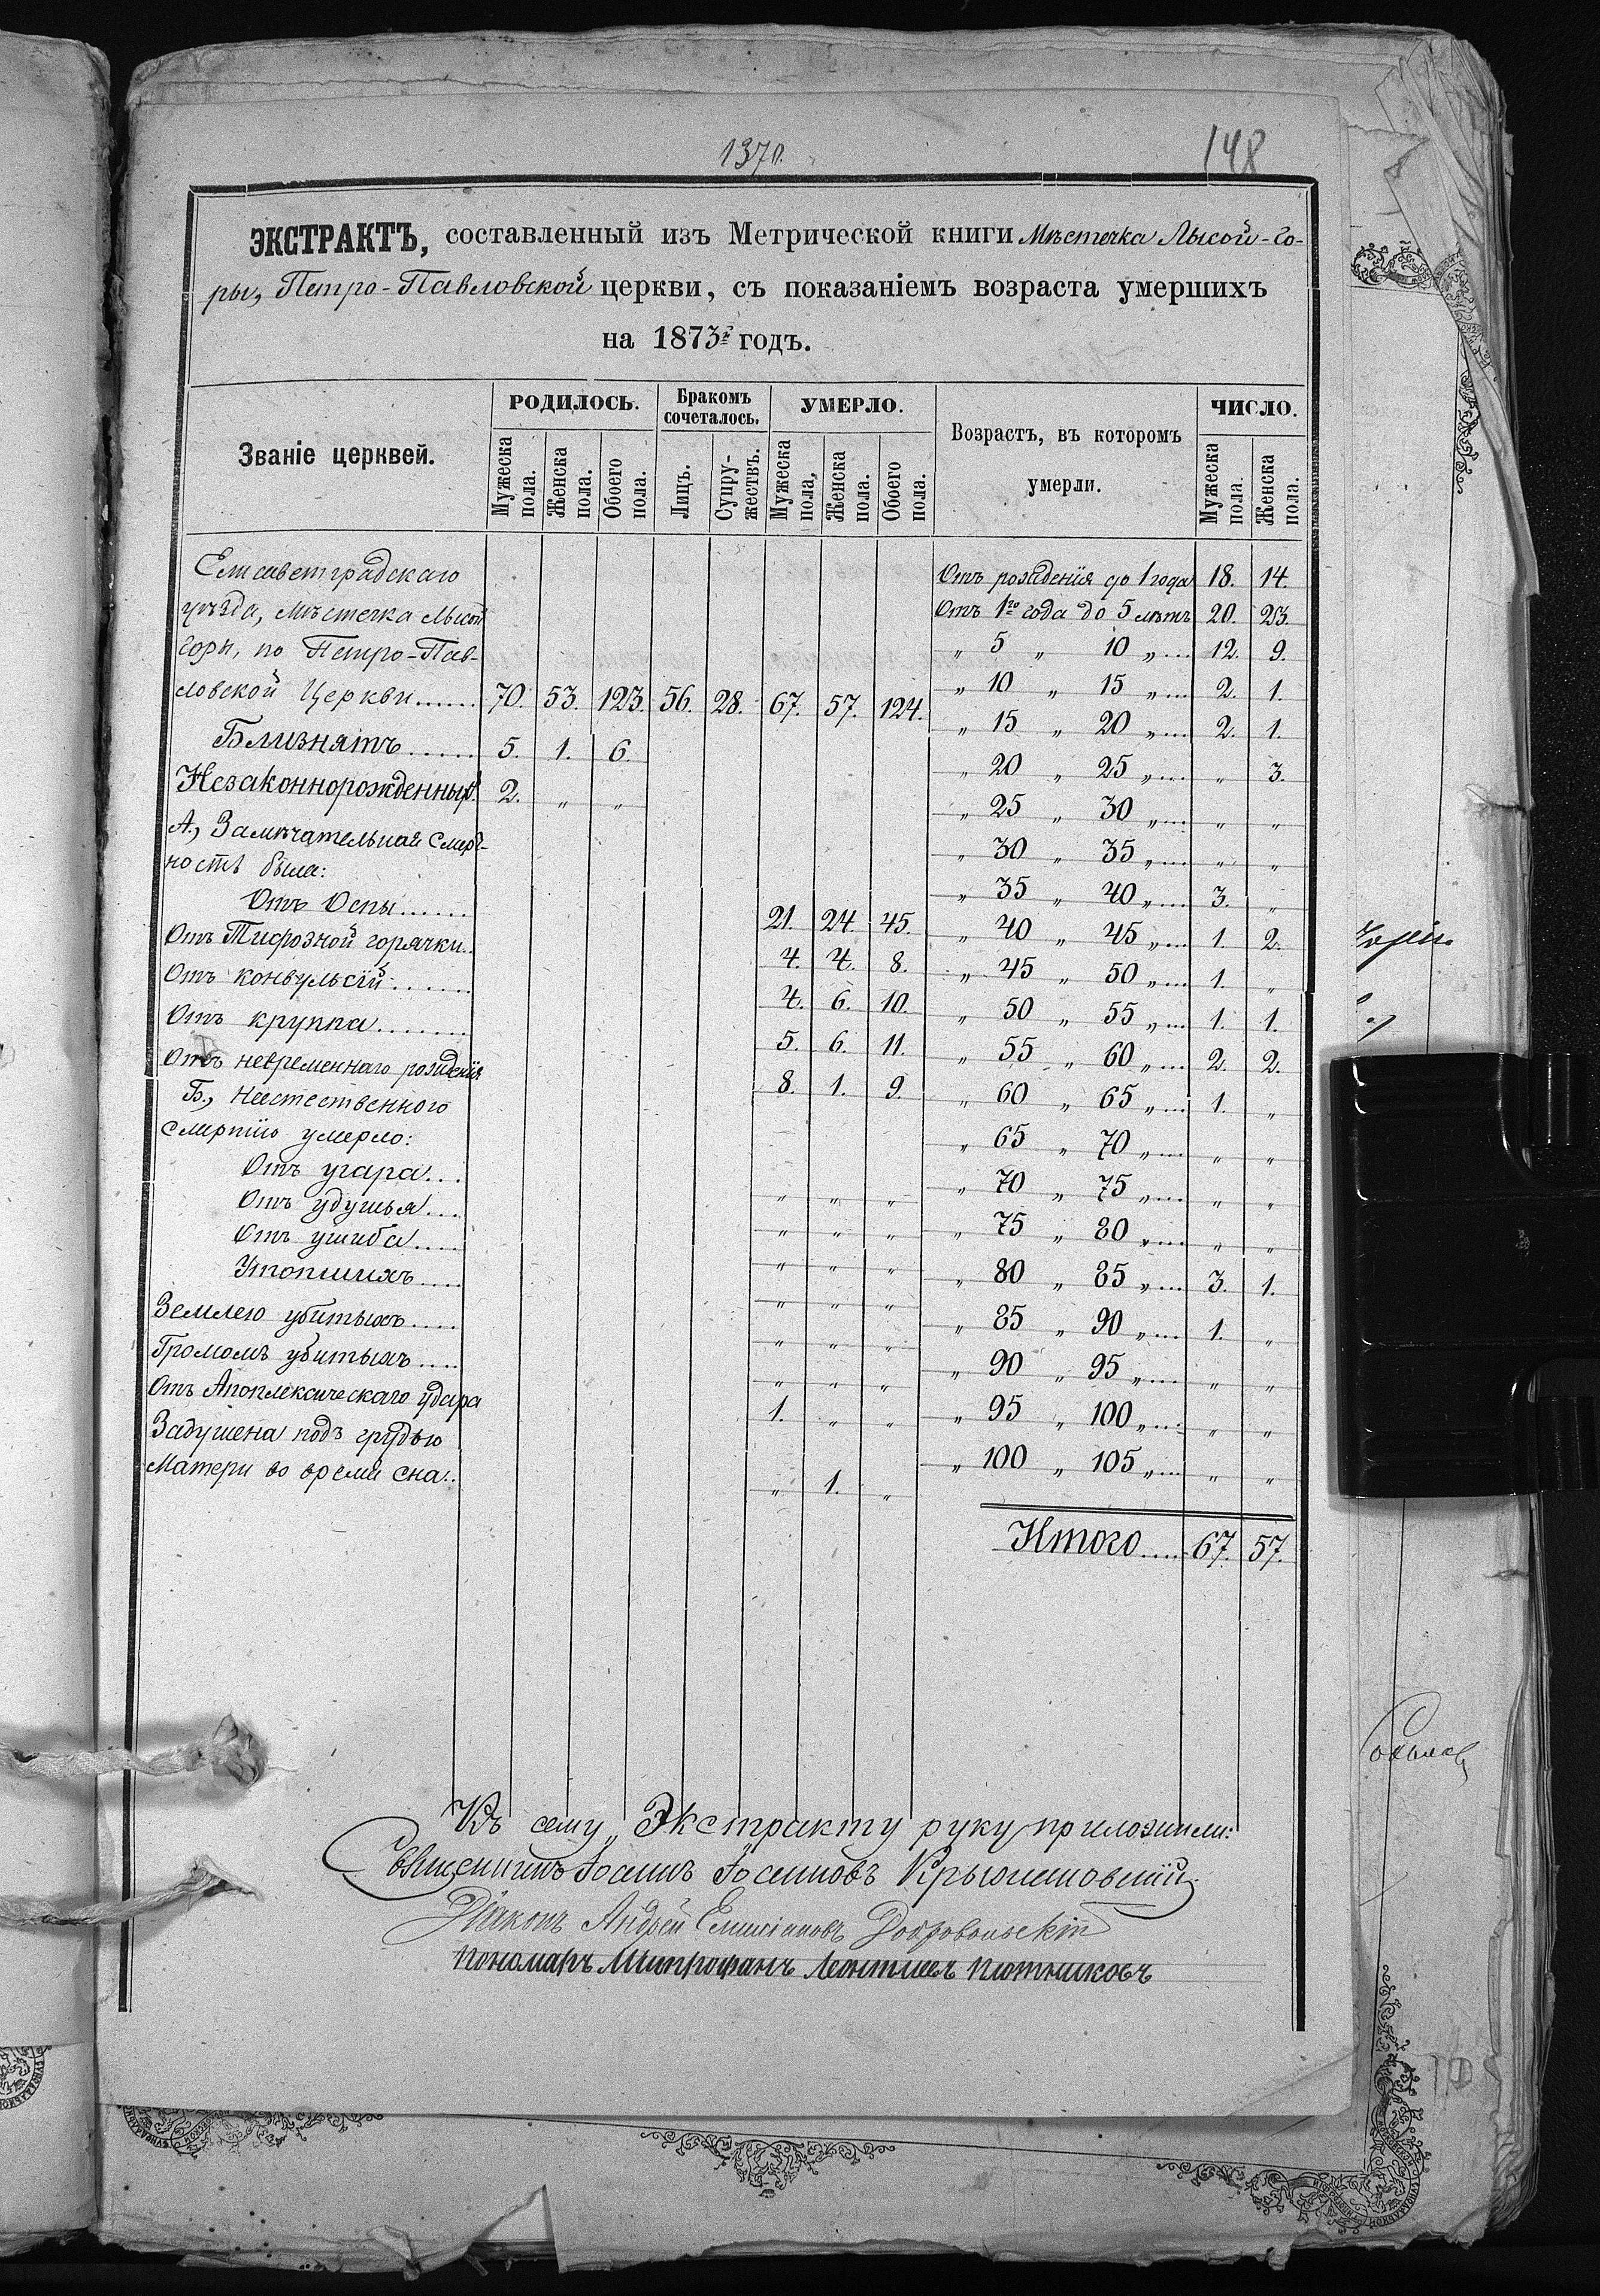 1370.
148
ЭКСТРАКТЪ, составленный изъ Метрической книги Мѣстечка Лысой-Го-
ры, Петро-Павловской церкви, съ показаніемъ возраста умершихъ
на 1873й годъ.
Званіе церквей.
РОДИЛОСЬ.
Мужеска пола.
Женска пола.
Обоего пола.
Бракомъ сочеталось.
Лицъ.
Супружествъ.
УМЕРЛО.
Мужеска пола,
Женска пола.
Обоего пола.
Возрастъ, въ которомъ умерли.
ЧИСЛО.
Мужеска пола.
Женска пола.
Елисаветградскаго
уѣзда, мѣстечка Лысой
Горы, по Петро-Пав-
ловской Церкви...... 70. 53. 123. 56. 28. 67. 57. 124.
Близнятъ...... 5. 1. 6.
Незаконнорожденных. 2. „ „
А., Замѣчательная смерт-
ность была:
Отъ Оспы...... 21. 24. 45.
Отъ Тифозной горячки.. 4. 4. 8.
Отъ конвульсій....... 4. 6. 10.
Отъ круппа........ 5. 6. 11.
Отъ невременнаго рожденія 8. 1. 9.
Б., Неестественного
смертію умерло:
Отъ угара... „ „ „
Отъ удушья... „ „ „
Отъ ушиба.... „ „ „
Утопшихъ.... „ „ „
Землею убитыхъ.... „ „ „
Громомъ убитыхъ.... „ „ „
Отъ Апоплексическаго удара 1. „ „
Задушена подъ грудью
Матери во время сна.. „ 1. „
Отъ рожденія до 1 года 18. 14.
Отъ 1го года до 5 лѣтъ 20. 23.
„ 5 „ 10 „.... 12. 9.
„ 10 „ 15 „.... 2. 1.
„ 15 „ 20 „.... 2. 1.
„ 20 „ 25 „.... „ 3.
„ 25 „ 30 „.... „ „
„ 30 „ 35 „.... „ „
„ 35 „ 40 „.... 3. „
„ 40 „ 45 „.... 1. 2.
„ 45 „ 50 „.... 1. „
„ 50 „ 55 „.... 1. 1.
„ 55 „ 60 „.... 2. 2.
„ 60 „ 65 „.... 1. „
„ 65 „ 70 „.... „ „
„ 70 „ 75 „.... „ „
„ 75 „ 80 „.... „ „
„ 80 „ 85 „.... 3. 1.
„ 85 „ 90 „.... 1. „
„ 90 „ 95 „.... „ „
„ 95 „ 100 „.... „ „
„ 100 „ 105 „.... „ „
Итого..... 67. 57.
Къ сему Экстракту руку приложили:
Священникъ Іосифъ Іосифовъ
Діаконъ Андрей Добровольскій
Пономарь Митрофанъ Леонтіевъ Плотниковъ